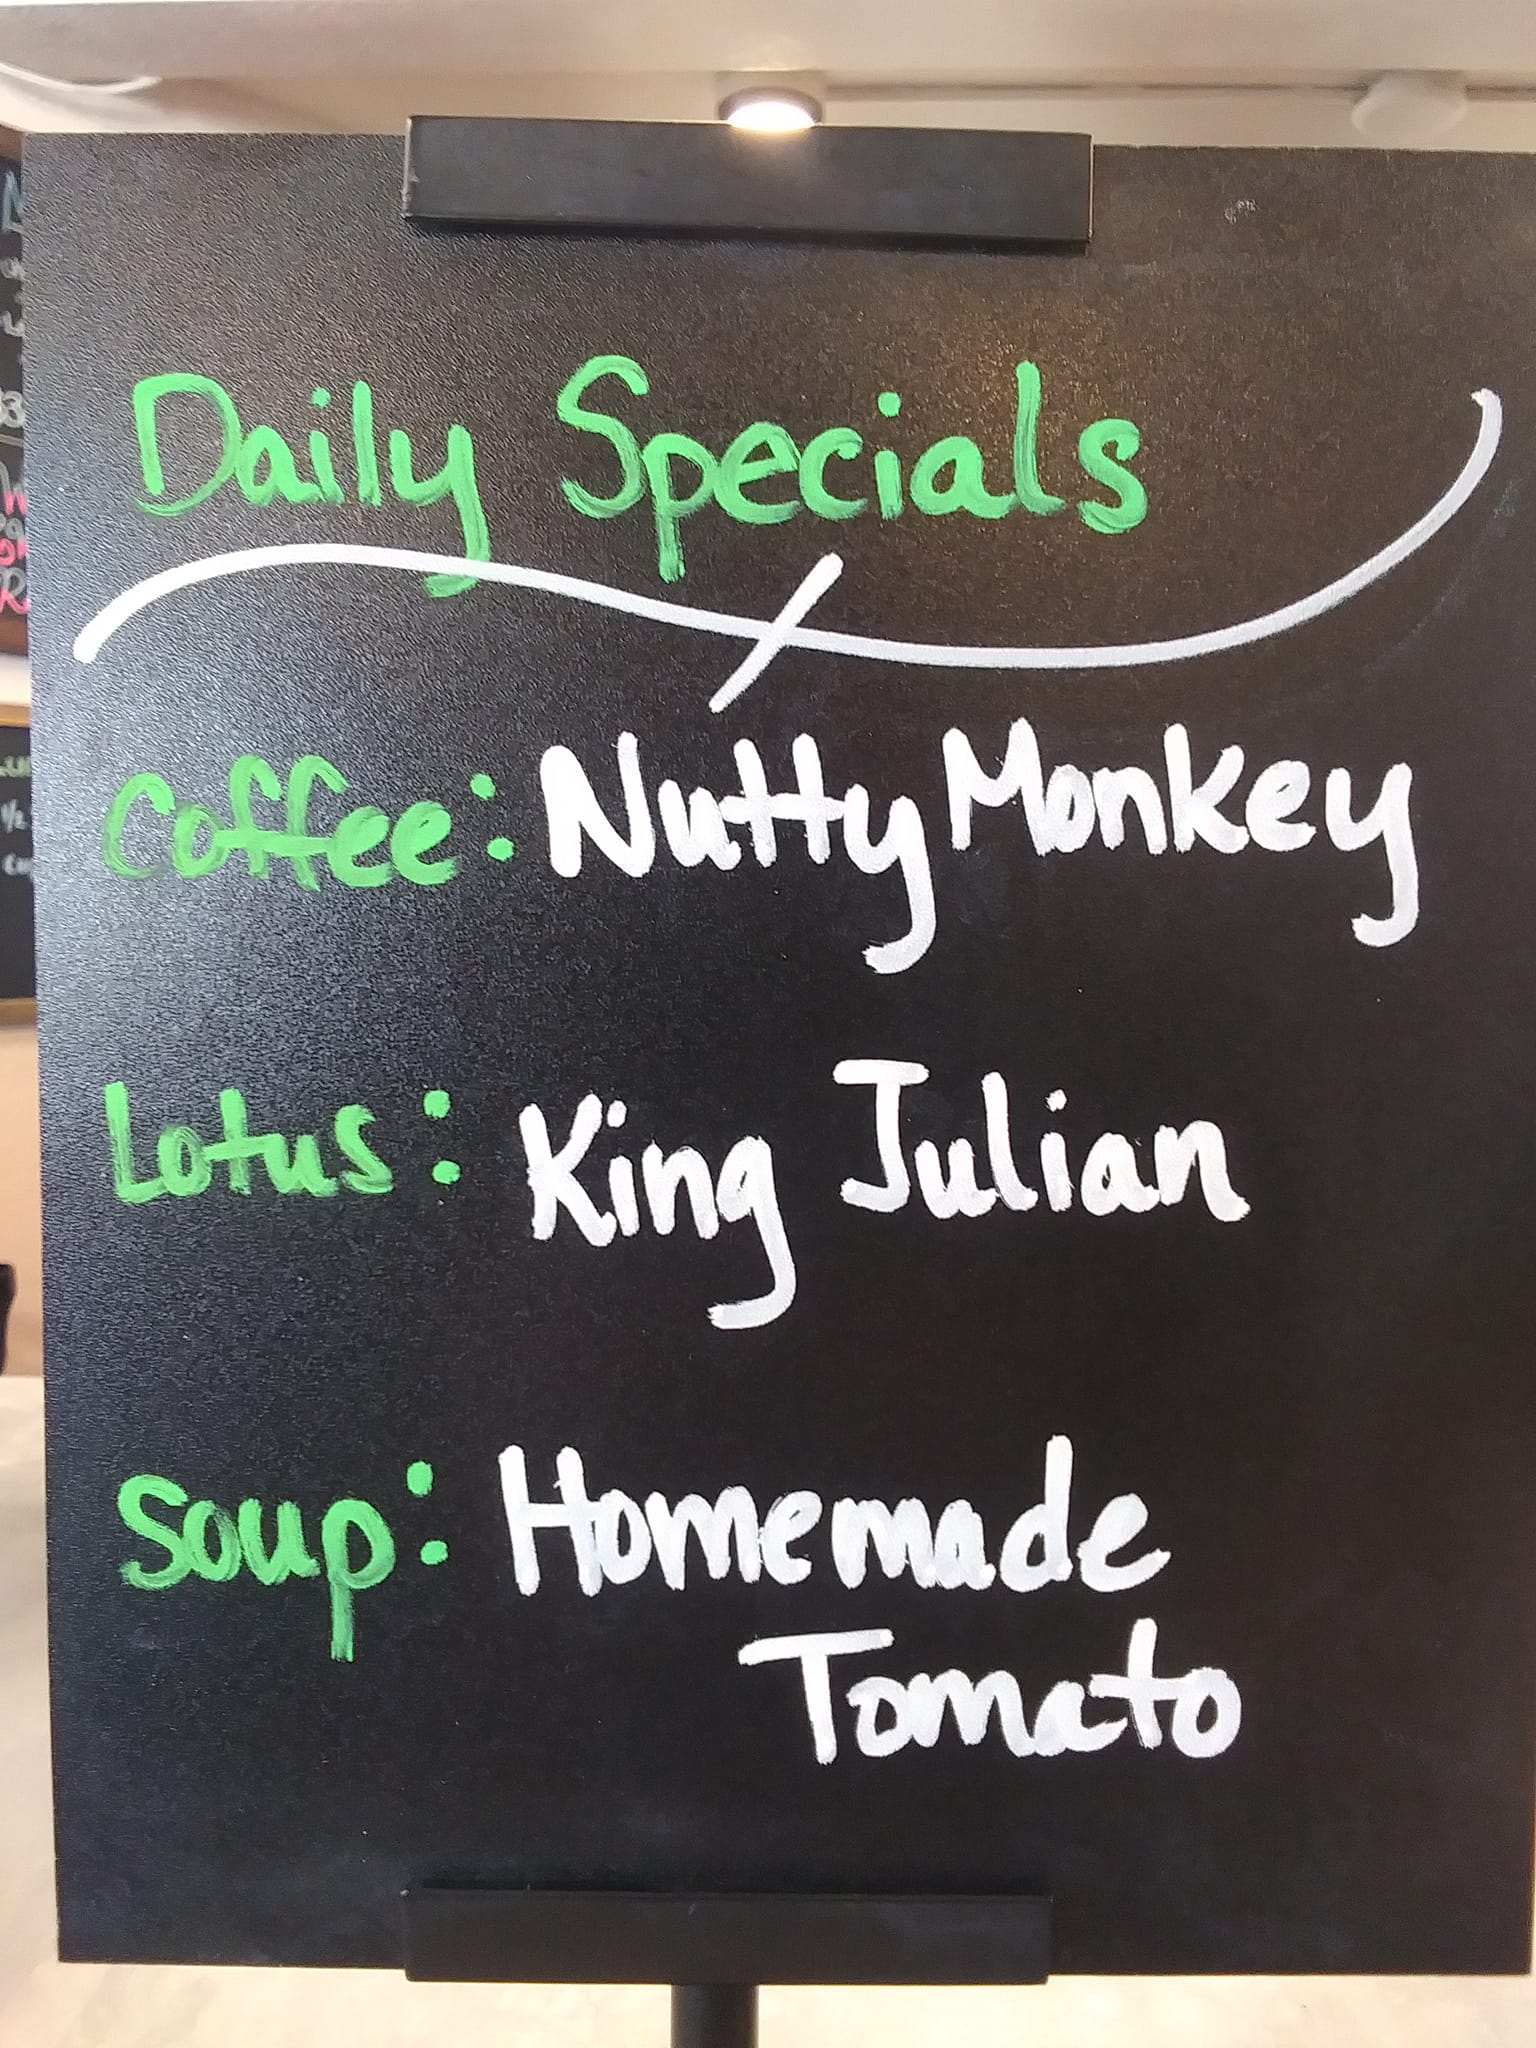 Daily Specials
Coffee: Nutty Monkey
Lotus: King Julian
Soup: Homemade
Tomato